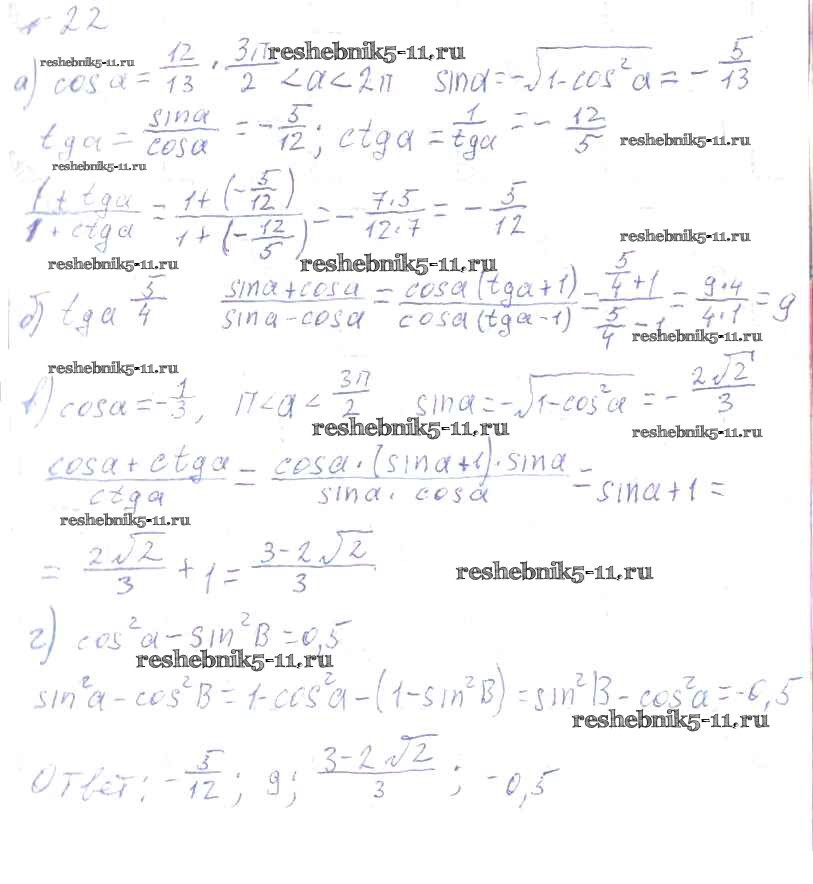 № 22
reshebnik5-11.ru
reshebnik5-11.ru
а) cosα = 12/13 · 3π/2 < α < 2π sinα = -√(1-cos²α) = - 5/13
tgα = sinα/cosα = - 5/12 ; ctgα = 1/tgα = - 12/5
reshebnik5-11.ru
reshebnik5-11.ru
(1 + tgα)/(1 + ctgα) = (1 + (-5/12))/(1 + (-12/5)) = - 7·5/12·7 = - 5/12
reshebnik5-11.ru
reshebnik5-11.ru
reshebnik5-11.ru
б) tgα 5/4 (sinα + cosα)/(sinα - cosα) = cosα(tgα + 1)/cosα(tgα - 1) = (5/4 + 1)/(5/4 - 1) = 9·4/4·1 = 9
reshebnik5-11.ru
reshebnik5-11.ru
в) cosα = - 1/3, π < α < 3π/2 sinα = -√(1-cos²α) = - 2√2/3
reshebnik5-11.ru
reshebnik5-11.ru
(cosα + ctgα)/ctgα = cosα·(sinα+1)·sinα/sinα·cosα = sinα + 1 =
reshebnik5-11.ru
= 2√2/3 + 1 = (3-2√2)/3
reshebnik5-11.ru
г) cos²α - sin²B = 0,5
reshebnik5-11.ru
sin²α - cos²B = 1-cos²α - (1-sin²B) = sin²B - cos²α = -0,5
reshebnik5-11.ru
Ответ: - 5/12 ; 9; (3-2√2)/3 ; -0,5